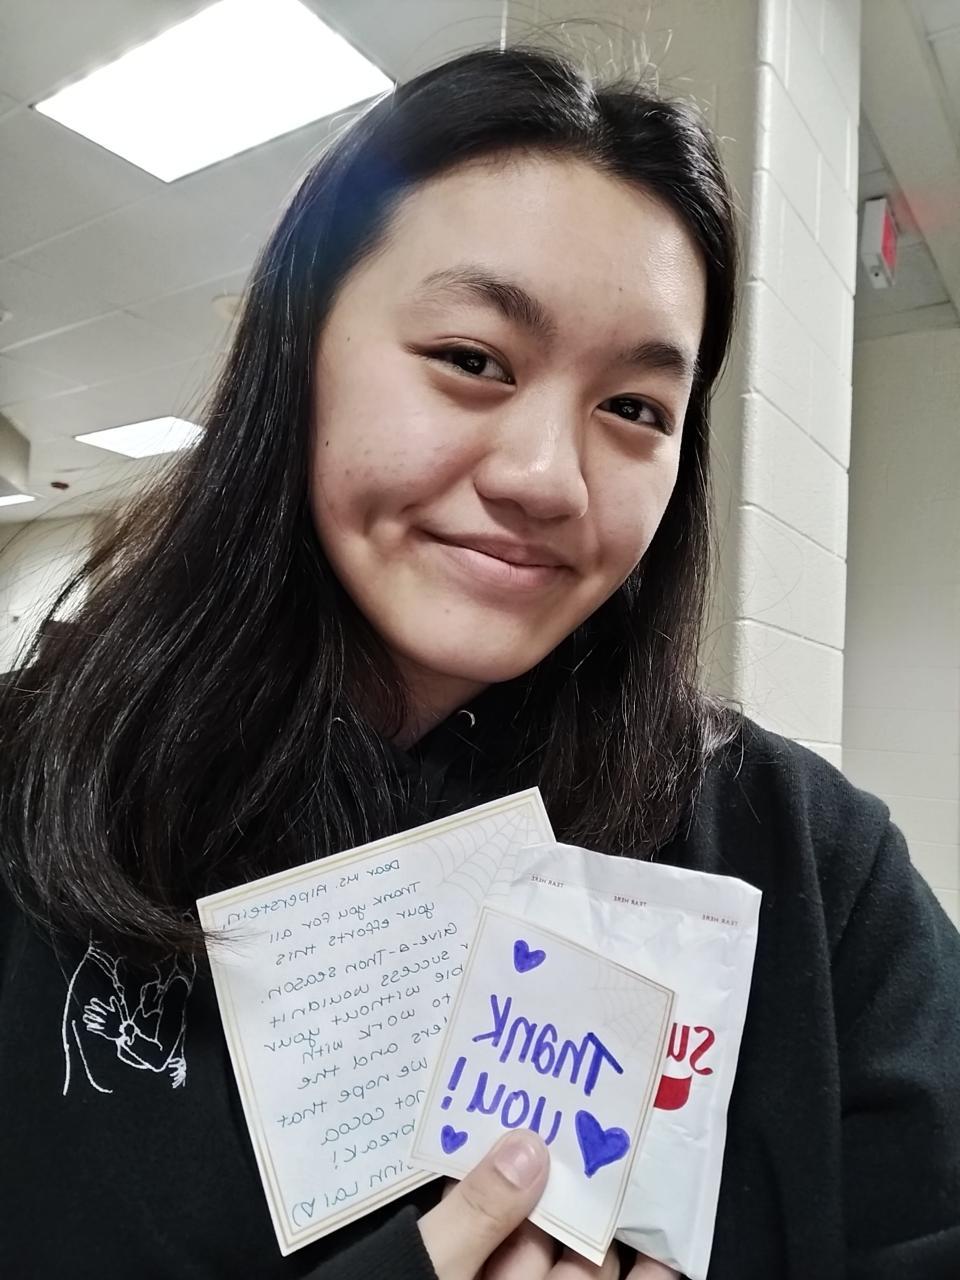 Dear Ms. Alperstein,
Thank you for all
your efforts this
Give-a-Thon season.
success wouldn't
to without your
work with
and the
we hope that
hot cocoa
break!
Lai
Thank
you!
TEAR HERE TEAR HERE TEAR HERE